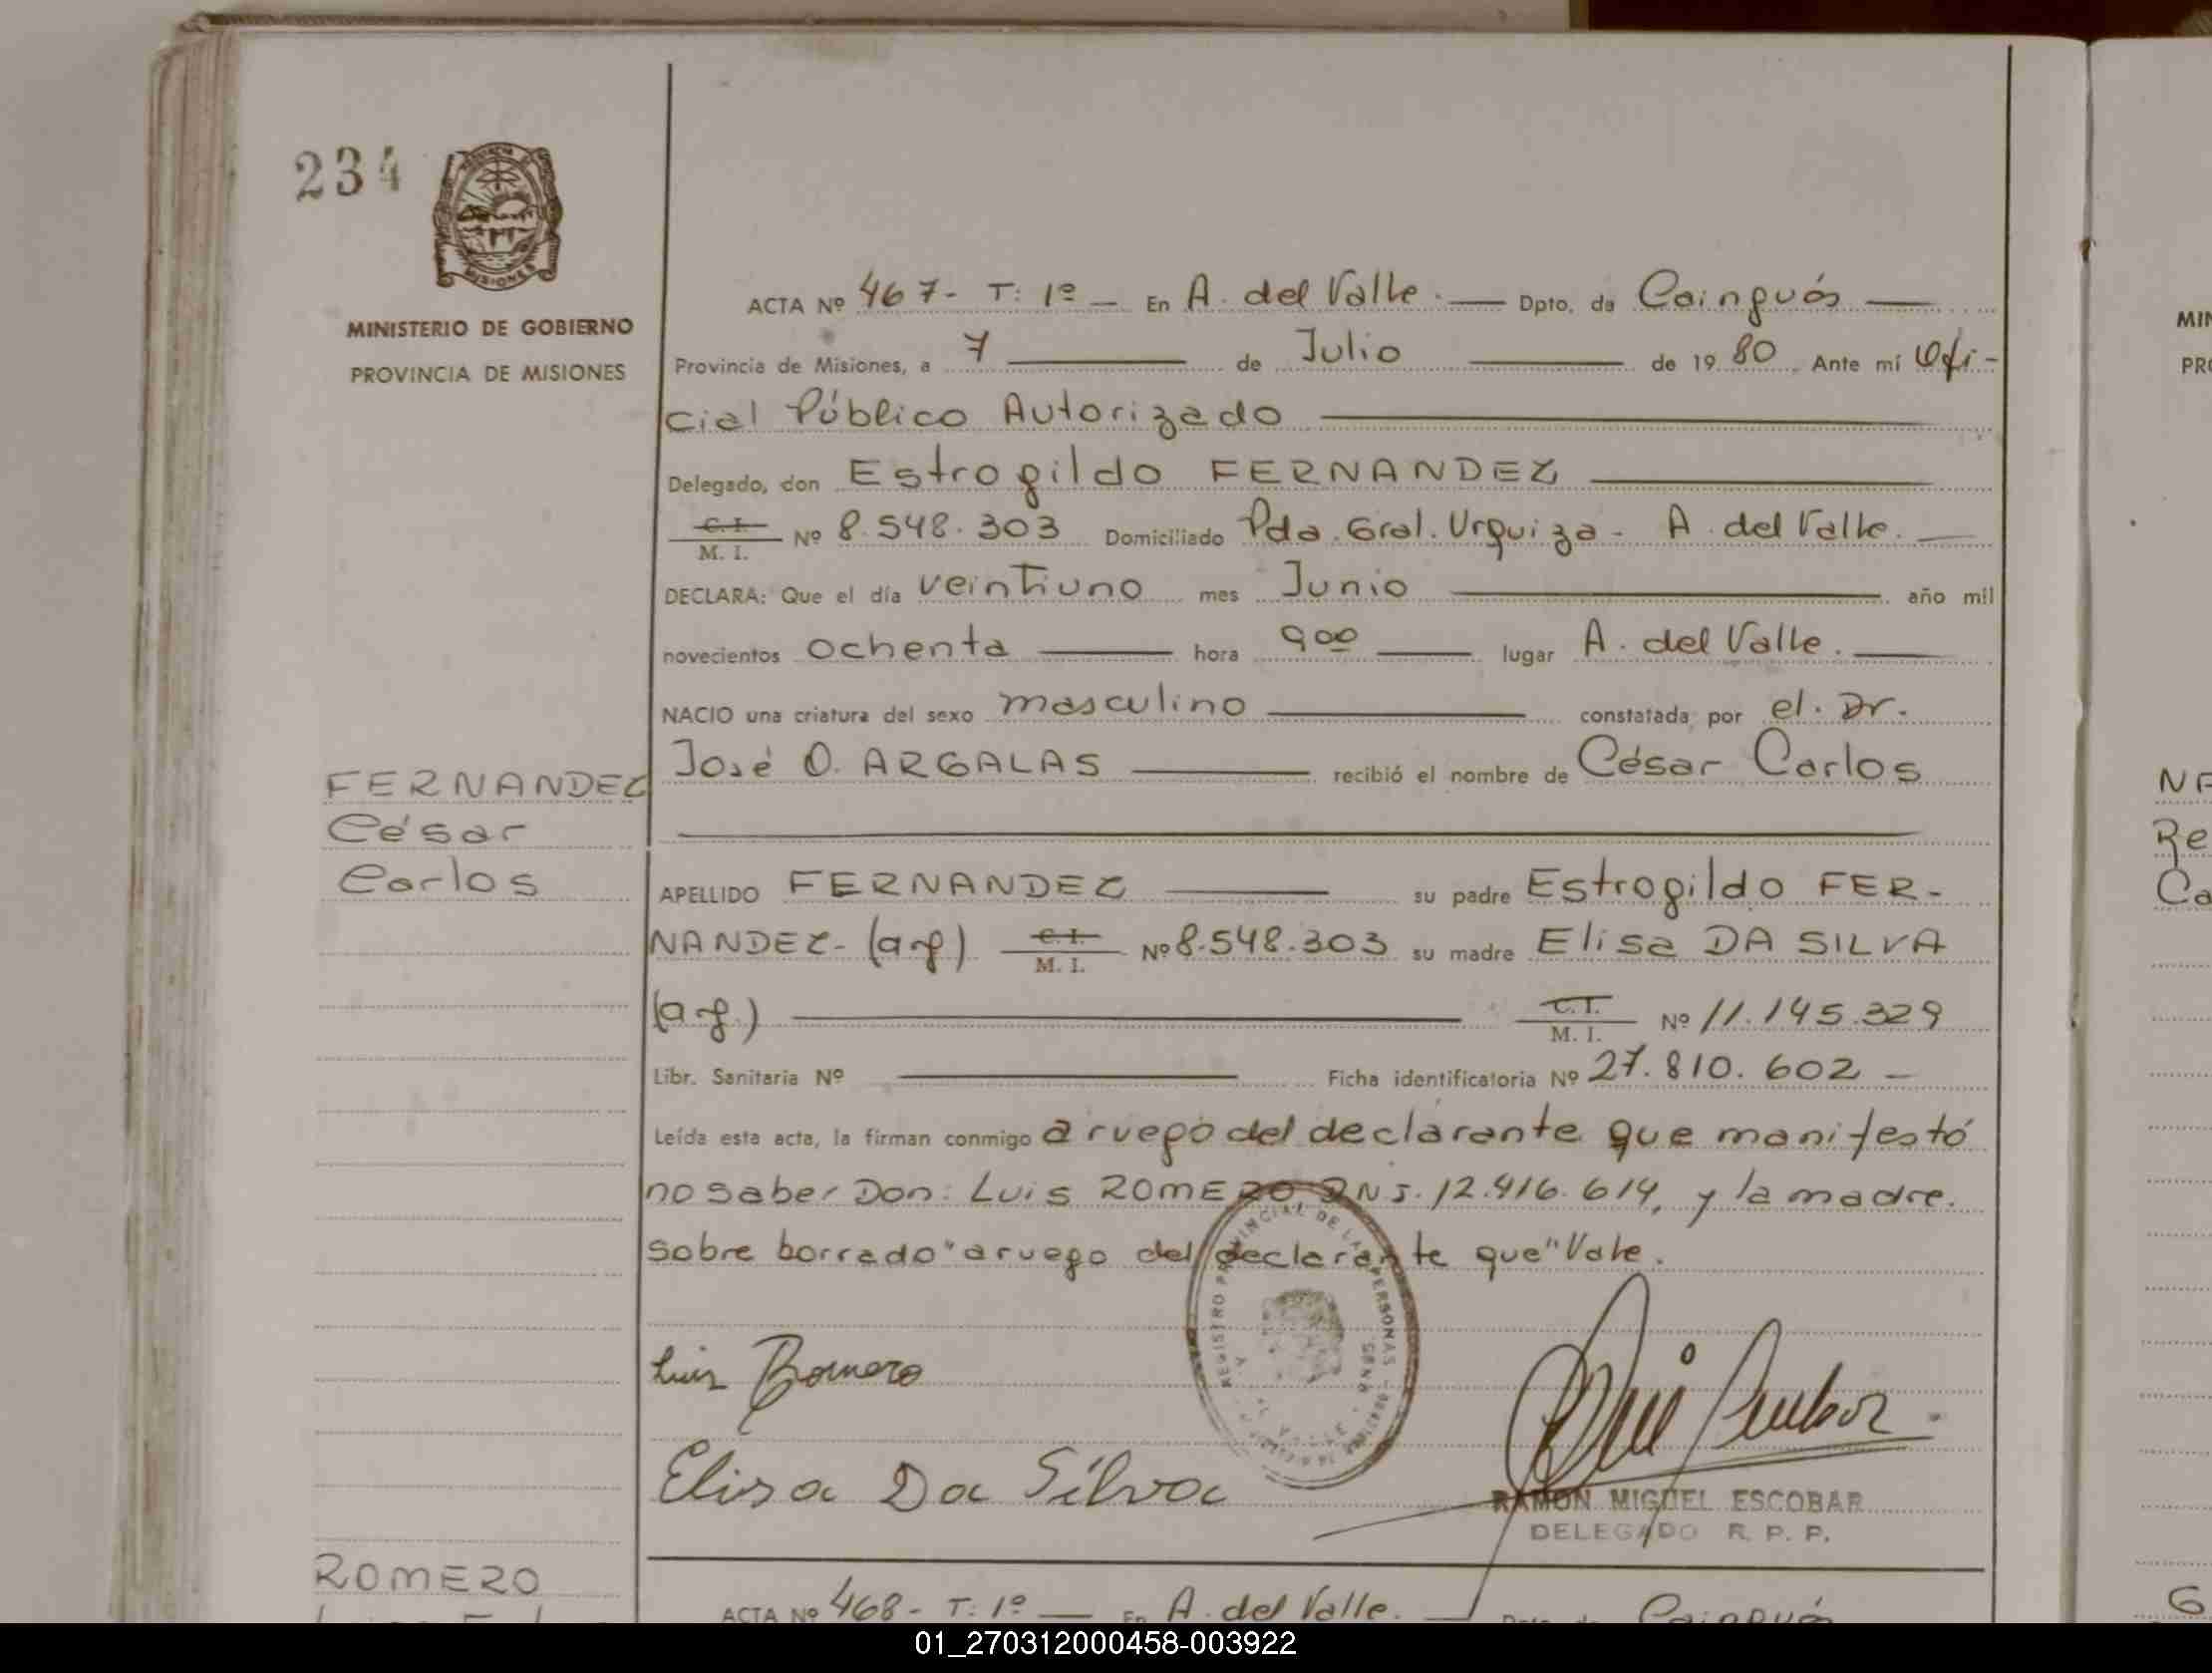 234
MINISTERIO DE GOBIERNO
PROVINCIA DE MISIONES
ACTA Nº 467- T: 1º — En A. del Valle. — Dpto, de Cainguás —
Provincia de Misiones, a 7 — de Julio — de 1980. Ante mí Ofi-
cial Público Autorizado —
Delegado, don Estrogildo FERNANDEZ —
C. I. M. I. Nº 8.548.303 Domiciliado Pda. Gral. Urquiza - A. del Valle. —
DECLARA: Que el día veintiuno mes Junio — año mil
novecientos ochenta — hora 9 00 — lugar A. del Valle. —
NACIO una criatura del sexo masculino — constatada por el. Dr.
José O. ARGALAS — recibió el nombre de César Carlos
FERNANDEZ
César
Carlos
APELLIDO FERNANDEZ — su padre Estrogildo FER-
NANDEZ- (arg) C. I. M. I. Nº 8.548.303 su madre Elisa DA SILVA
(arg.) — C. I. M. I. Nº 11.145.329
Libr. Sanitaria Nº — Ficha identificatoria Nº 27.810.602 -
Leída esta acta, la firman conmigo a ruego del declarante que manifestó
no saber Don: Luis ROMERO DNI. 12.416.614, y la madre.
sobre borrado "a ruego del declarante que" Vale.
REGISTRO PROVINCIAL DE LAS PERSONAS
Luis Romero
Elisa Da Silva
RAMON MIGUEL ESCOBAR
DELEGADO R. P. P.
ROMERO
ACTA Nº 468- T: 1º — En A. del Valle. — Dpto. de Cainguás
MIN
PRO
NA
Re
Ca
G
01_270312000458-003922